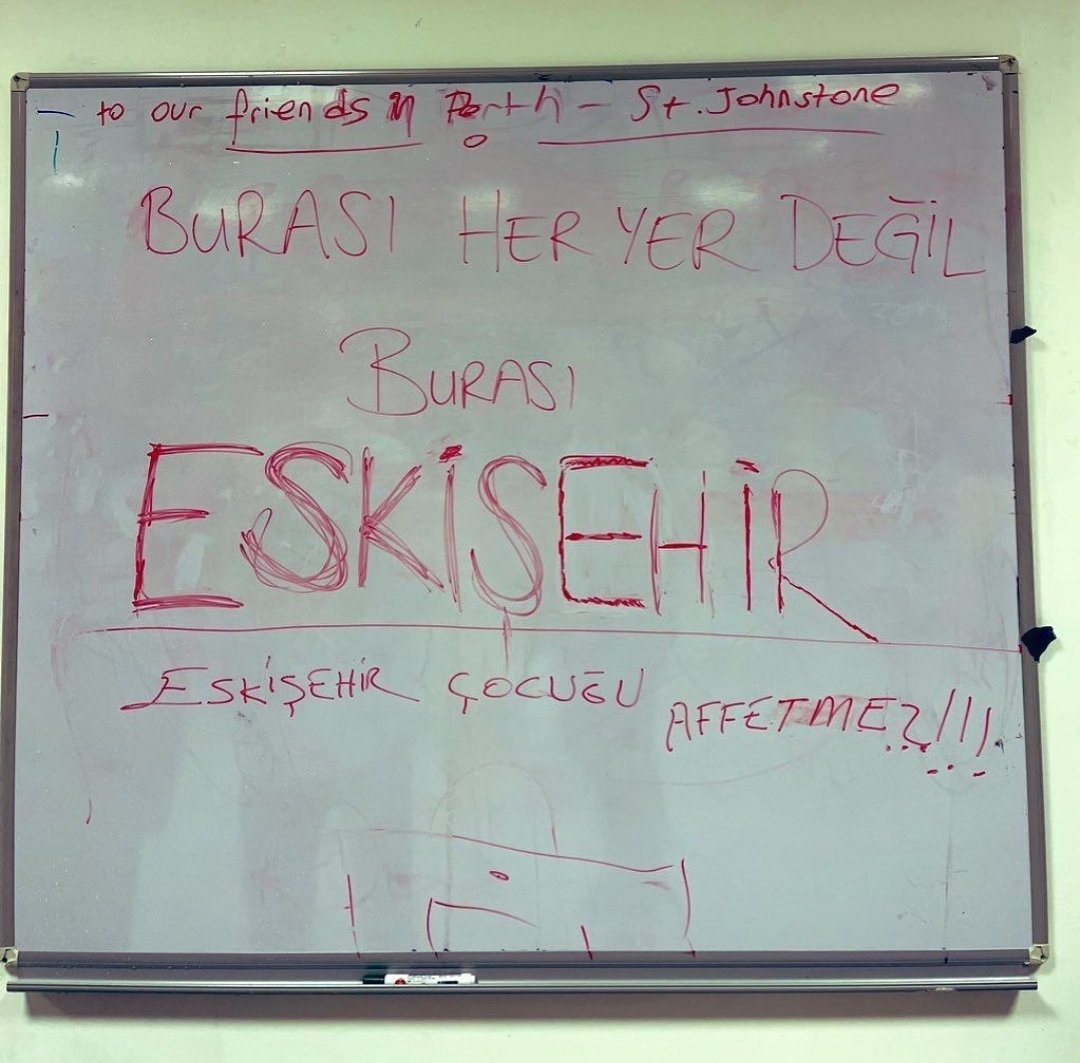 to our friends in Perth - St. Johnstone
BURASI HER YER DEĞİL
BURASI
ESKİŞEHİR
ESKİŞEHİR ÇOCUĞU
AFFETMEZ!!!